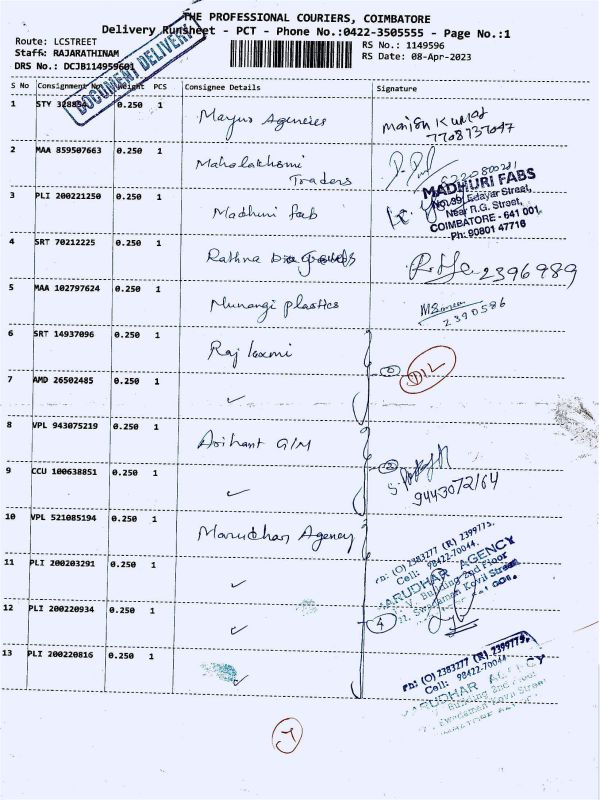 THE PROFESSIONAL COURIERS, COIMBATORE
Delivery Runsheet - PCT - Phone No.:0422-3505555 - Page No.:1
Route: LCSTREET
RS No.: 1149596
Staff: RAJARATHINAM
RS Date: 08-Apr-2023
DRS No.: DCJB114959601
DOCUMENT DELIVERY
S No Consignment No Weight PCS Consignee Details Signature
1 STY 328854 0.250 1 Mayur Agencies Manish Kumar
7708737047
2 MAA 859507663 0.250 1 Mahalakhsmi
Traders
3 PLI 200221250 0.250 1 Madhuri fab
MADHURI FABS
No. 99, Edayar Street,
Near R.G. Street,
COIMBATORE - 641 001.
Ph: 90801 47716
4 SRT 70212225 0.250 1 Rathna 2396989
5 MAA 102797624 0.250 1 Munangi plastics
2390586
6 SRT 14937096 0.250 1 Raj laxmi
7 AMD 26502485 0.250 1 ✓
8 VPL 943075219 0.250 1 Arihant G/M
9 CCU 100638851 0.250 1 ✓ 2
9443072164
10 VPL 521085194 0.250 1 Marudhar Agency
11 PLI 200203291 0.250 1 ✓
Ph: (O) 2383277 (R) 2399775.
Cell: 98422-70044.
ARUDHAR AGENCY
Building 2nd Floor
Swedaman Kovil Street
12 PLI 200220934 0.250 1 ✓ 4
13 PLI 200220816 0.250 1 ✓
Ph: (O) 2383277 (R) 2399775.
Cell: 98422-70044
ARUDHAR AGENCY
Building 2nd Floor
Swedaman Kovil Street